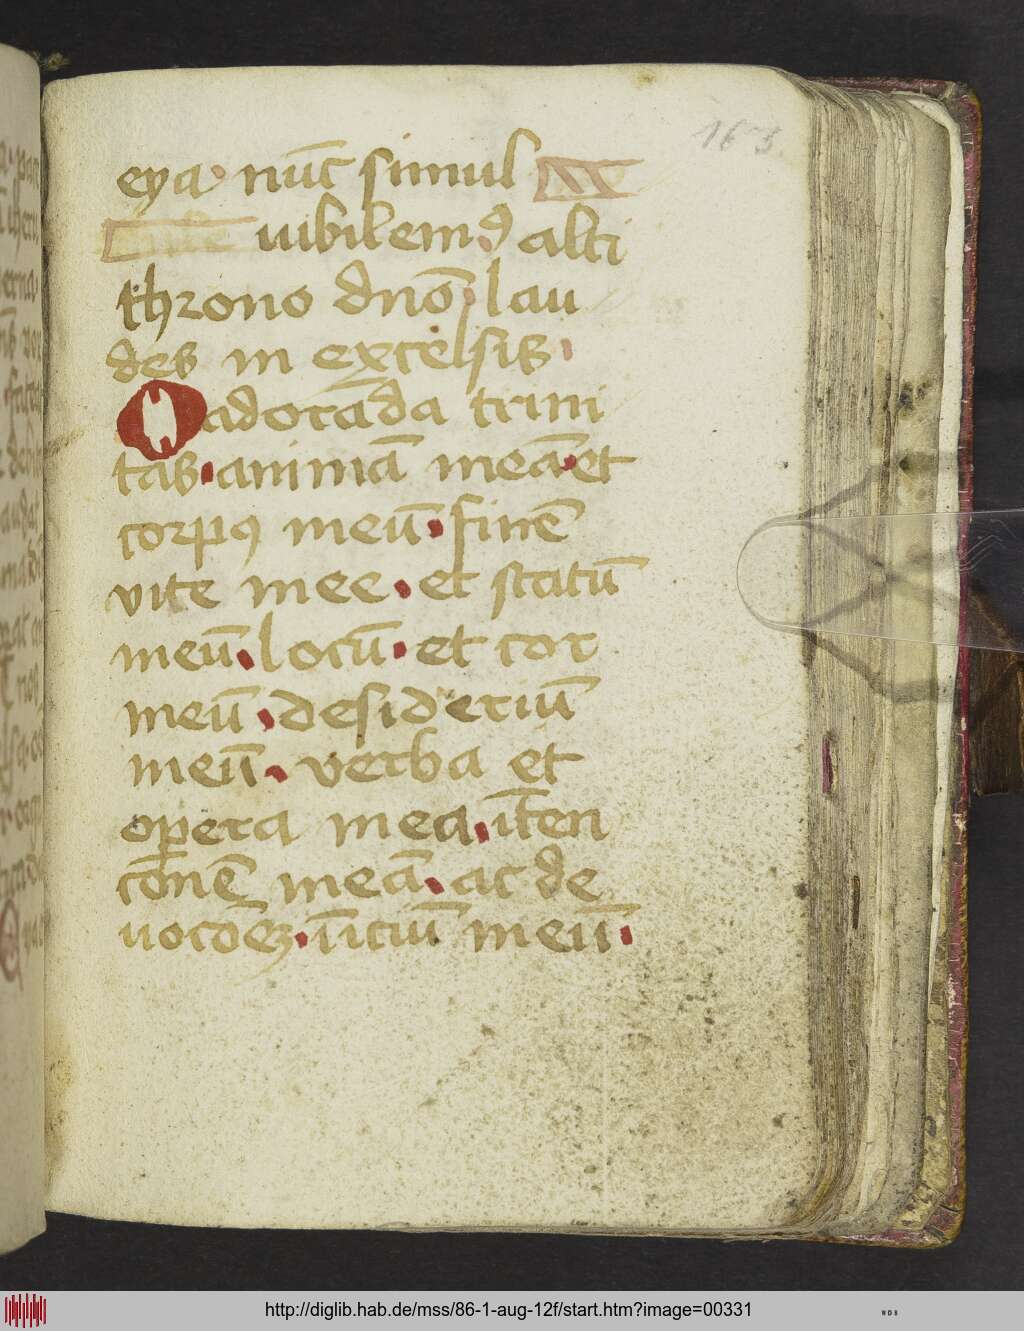 163
eya · nūc simul
iubilemꝰ alti
throno dn̄o lau
des in excelsis
O adorāda trini
tas · animā meā · et
corpꝰ meū · finē
vite mee · et statū
meū · locū · et cor
meū · desideriū
meū · verba et
opera mea · īten
cōnē meā · ac de
uocōēꝫ · īiciū meū ·
http://diglib.hab.de/mss/86-1-aug-12f/start.htm?image=00331